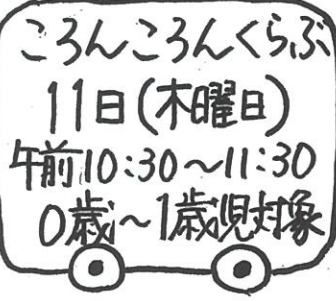 ころんころんくらぶ
11日(木曜日)
午前10:30～11:30
0歳～1歳児対象